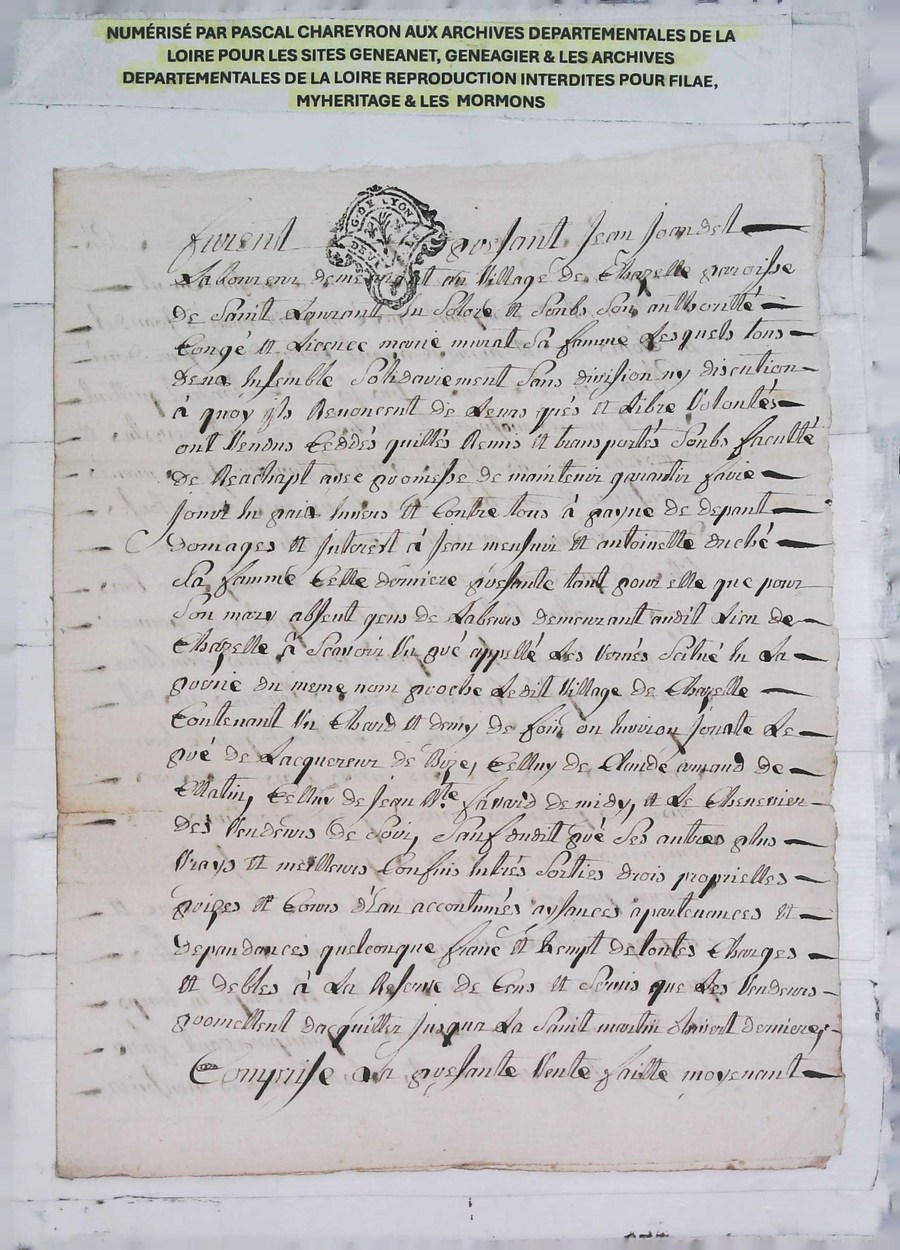 NUMÉRISÉ PAR PASCAL CHAREYRON AUX ARCHIVES DEPARTEMENTALES DE LA
LOIRE POUR LES SITES GENEANET, GENEAGIER & LES ARCHIVES
DEPARTEMENTALES DE LA LOIRE REPRODUCTION INTERDITES POUR FILAE,
MYHERITAGE & LES MORMONS
G. DE LYON
furent presant Jean Joandel
Laboureur demeurant au Village de Chazelle paroisse
de Saint Laurant En Solore et Soubs Son authorité
Congé et Licence marie murat Sa famme Lesquels tous
deux Ensemble Solidairement Sans division ny discution
à quoy ils Renoncent de Leurs grés et Libre Volontés
ont Vendus Ceddés quittés Remis et transportés Soubs faculté
de Reachapt avec promesse de maintenir garantir faire
Jouir En paix Envers et Contre tous à payne de depant
domages et Interest à Jean et antoinette duché
Sa famme Cette derniere presante tant pour elle que pour
Son mary absent gens de Labeurs demeurant audit Lieu de
Chazelle à Scavoir Un pré appellé Les Vernés Scitué En La
prerie du meme nom proche Ledit Village de Chazelle
Contenant Un Chard et demy de foin ou Environ Jouxte Le
pré de Lacquereur de Bize, Celluy de Claude de
Matin, Celluy de Jean Bte favard de midy, et Le Chenevier
des Vendeurs de Soir, Sauf dudit pré Ses autres plus
Vrays et meilleurs Confins Entrés Sorties drois proprietles
prizes et Cours d'Eau accoutumés aysances apartenances et
dependances quelconque franc et Exempt de toutes Charges
et debtes à La Reserve de Cens et Servis que Les Vendeurs
promettent dacquitter Jusqua La Saint martin dhivert derniere
Comprise La presante Vente faitte moyenant